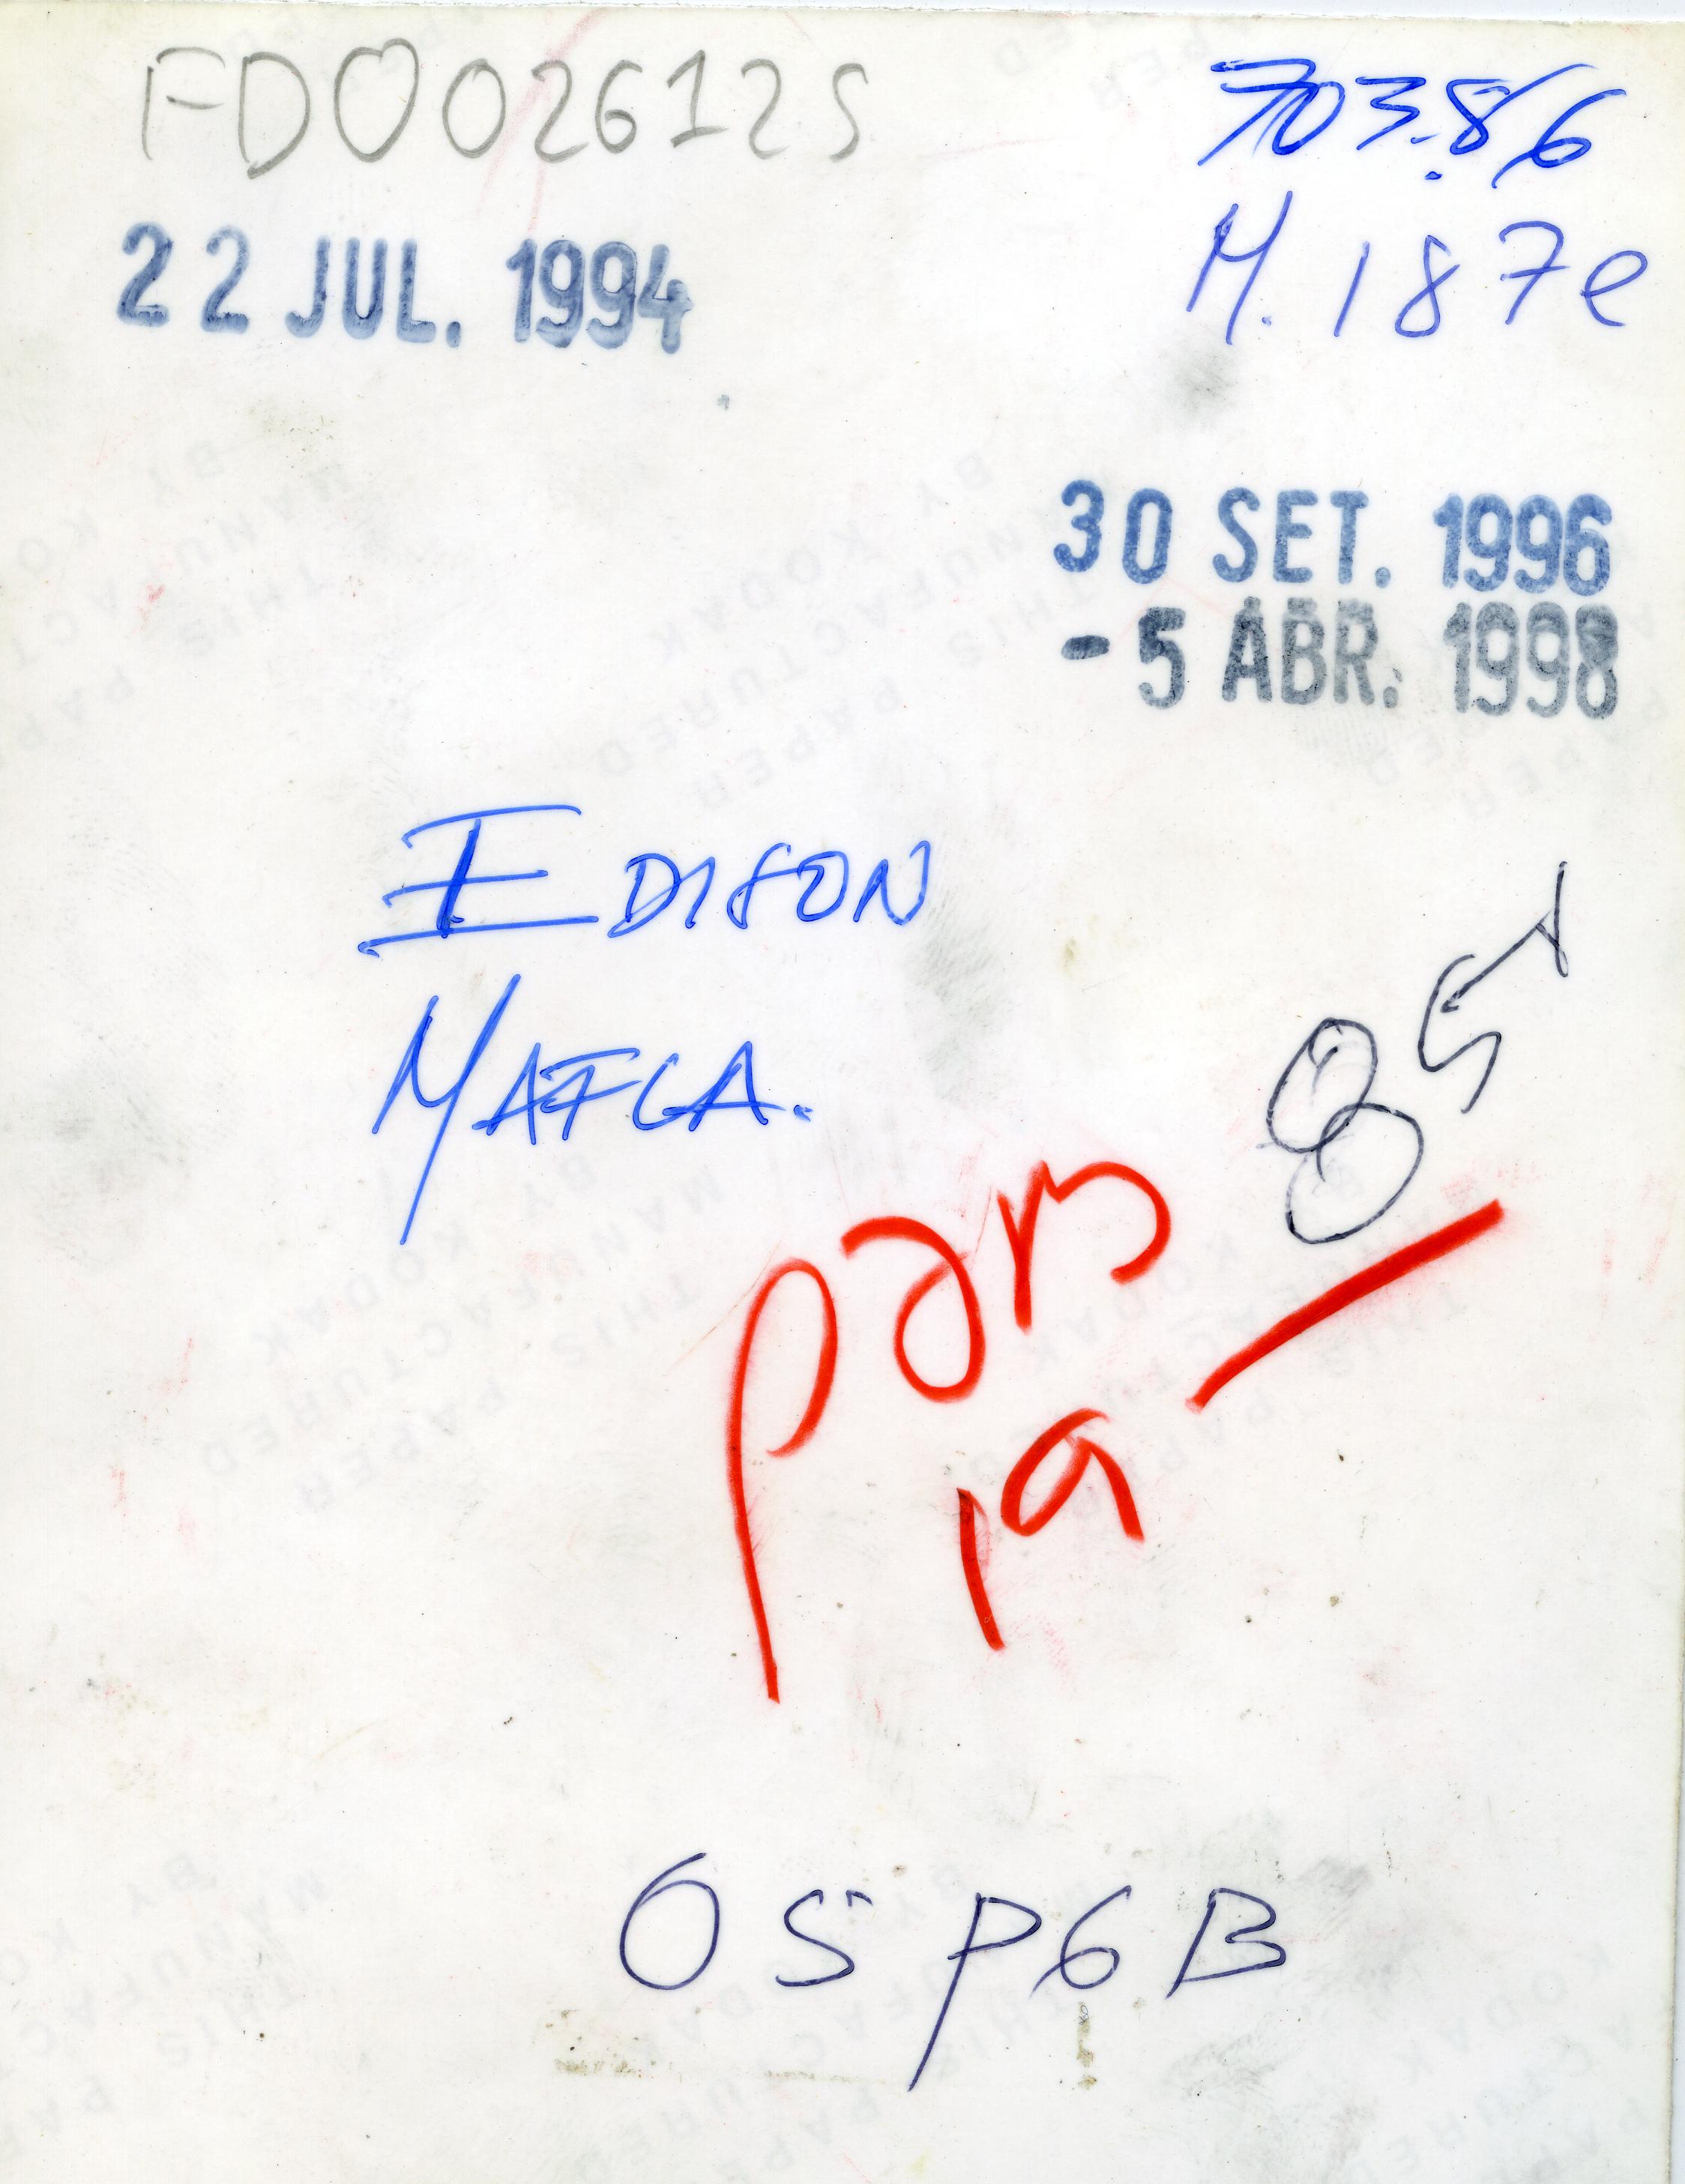 FD0026125
703.86
22 JUL. 1994
M. 187e
30 SET. 1996
- 5 ABR. 1998
EDISON
MAFCA.
85
19
OSPGB
THIS PAPER
MANUFACTURED
BY KODAK